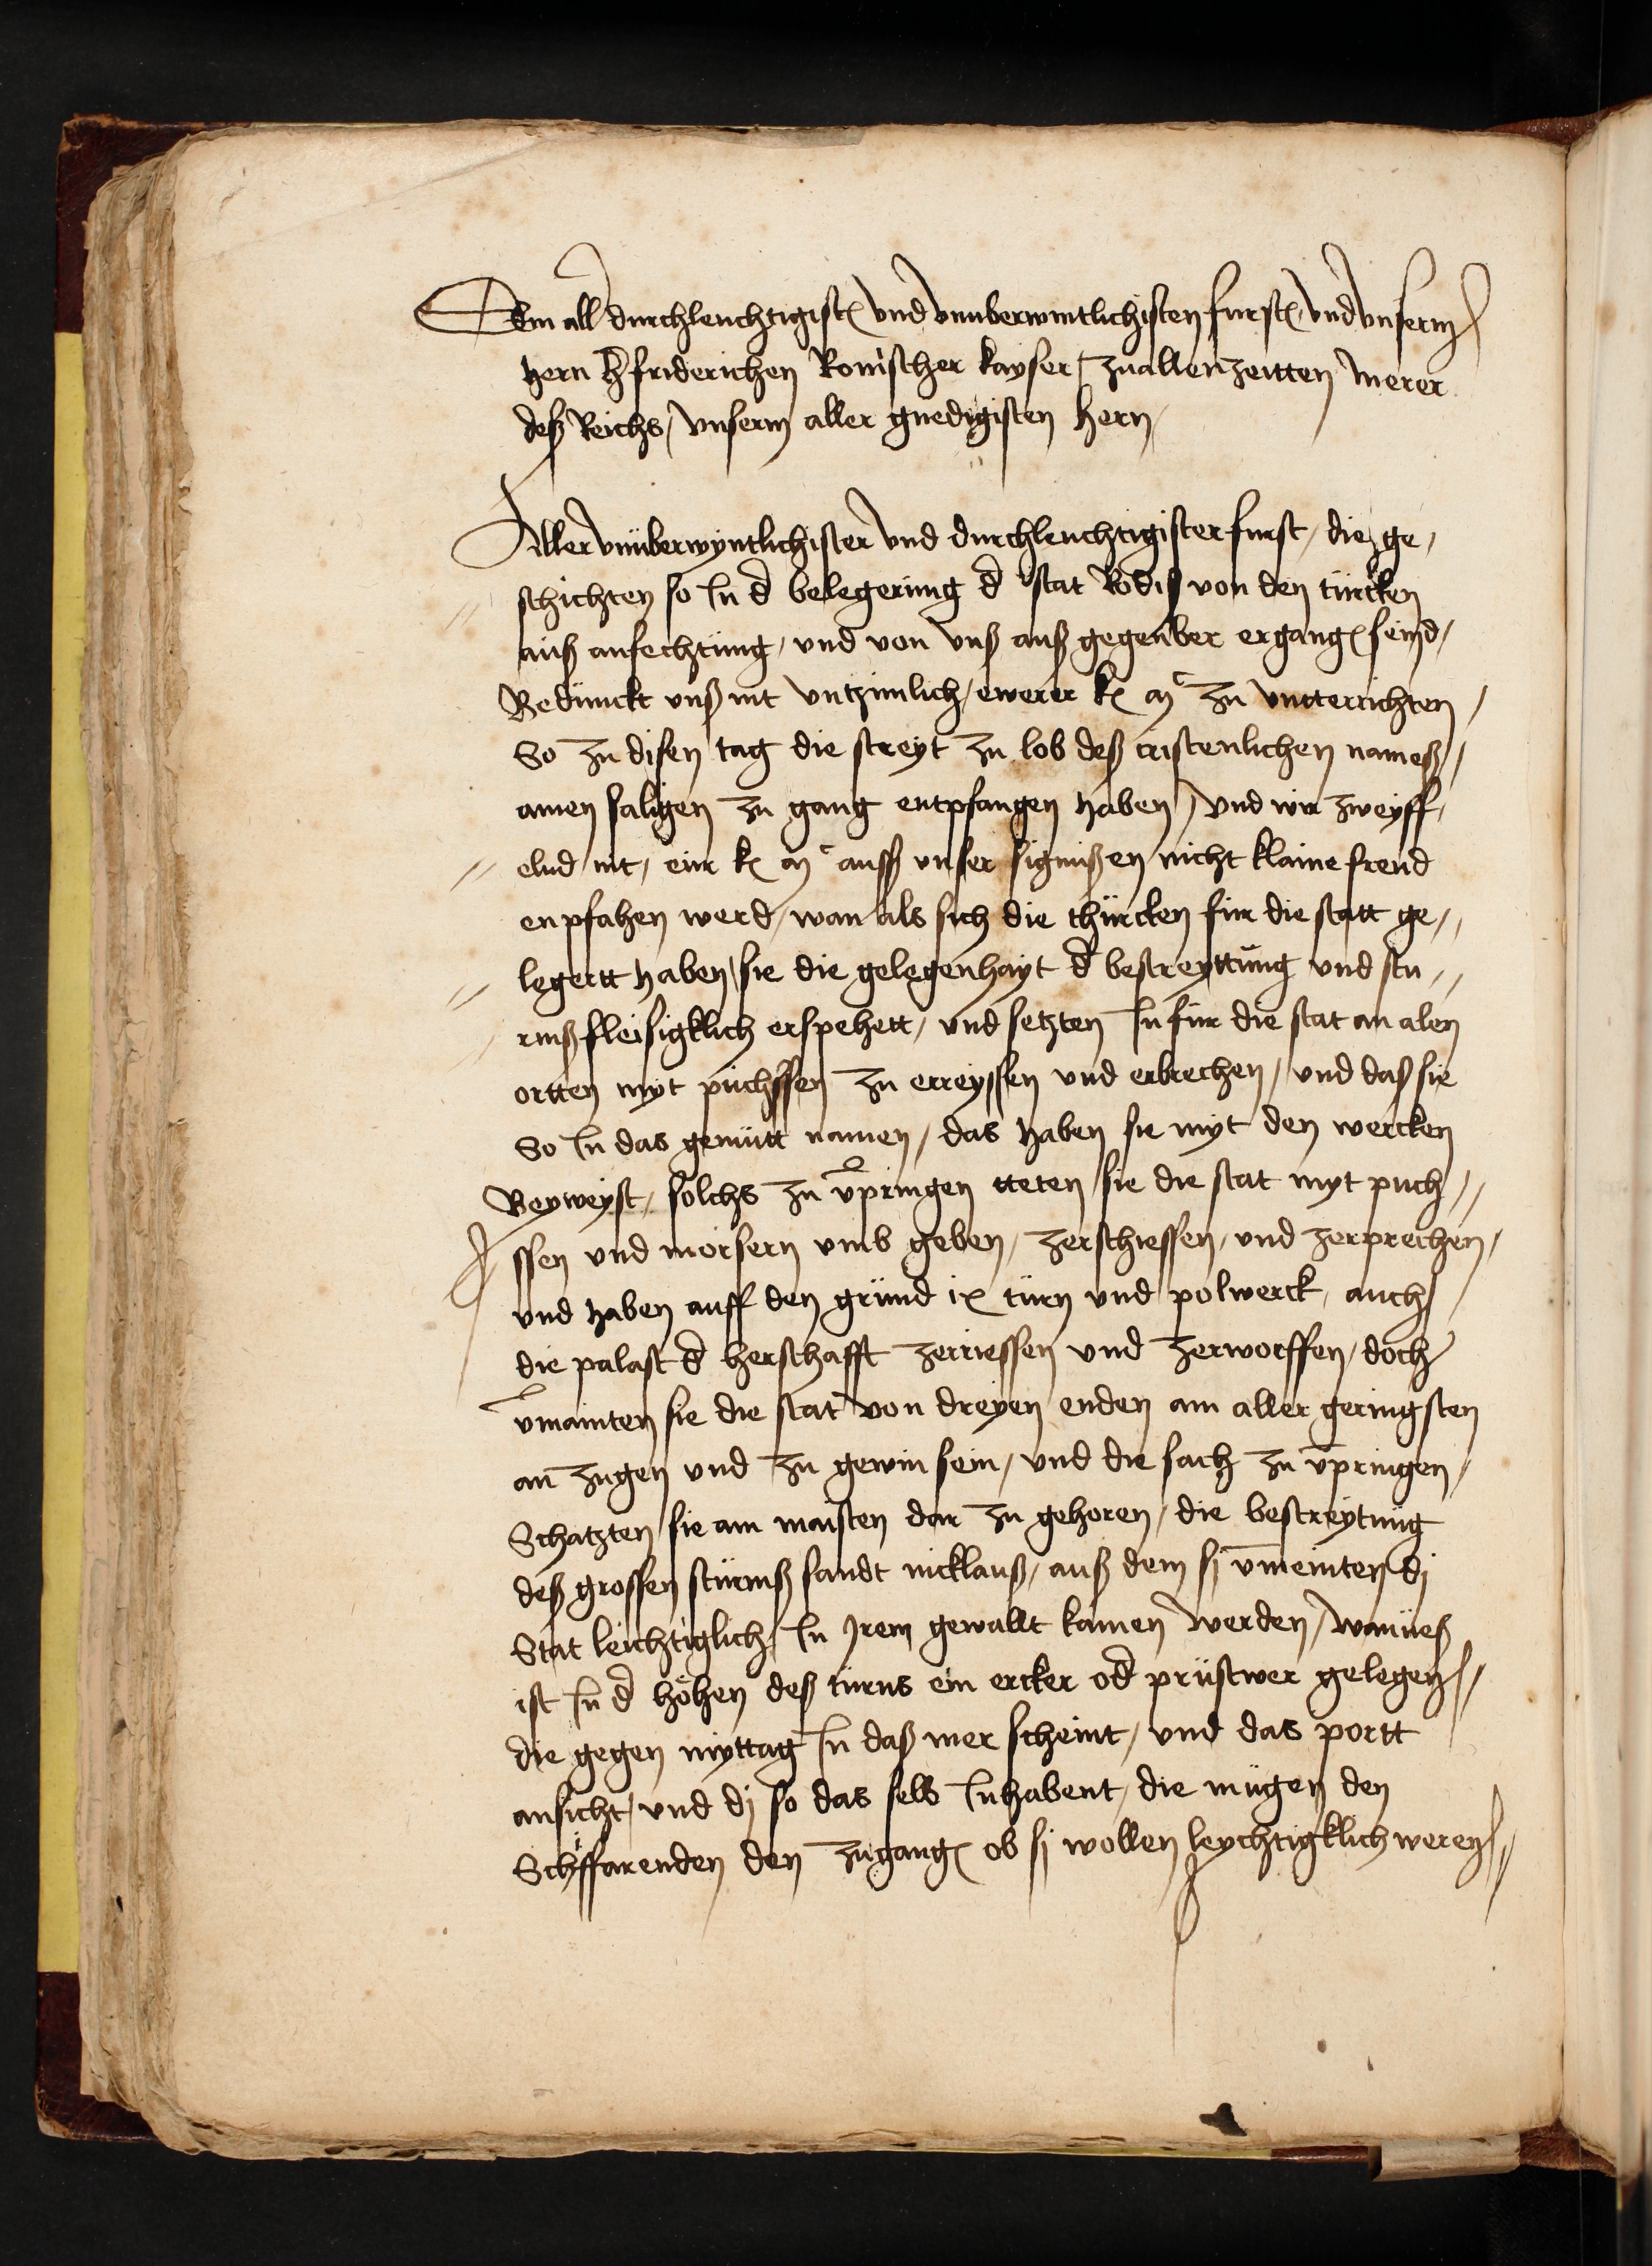 Dem all durchleuchtigist vnd vnuberwintlichisten furst / vnd vnserm
hern h friderichen Romischer kayser / zuallenzeitten merer
deß Reichs / vnserm aller gnedigisten hern
Aller vnüberwyntlichister vnd durchleuchtigister furst / die ge /
schichten so In d belegerung d stat Rodiß von den türcken
auß anfechtung / vnd von vnß auß gegenber ergang seind /
Bedünckt vnß nit vntzimlich / ewerer k m zu vntterrichten /
So zu disen tag die streyt zu lob deß cristenlichen nameß /
amen saligen zu gang entpfangen haben / vnd wir zweyff /
elnd nit / eur k m auß vnser signußen nicht klaine freud
enpfahen werd / wan als sich die thürcken für die statt ge /
legertt haben / sie die gelegenhayt d bestreyttung vnd stu //
rmß fleisigklich erspehett / vnd setzten In für die stat an alen
ortten myt püchssen zu erreyssen vnd erbrechen / vnd daß sie
So In das gemütt namen / das haben sie myt den wercken
Beyweyst / solchs zu vpringen tteten sie die stat myt puch //
ssen vnd morsern vmb geben / zerschiessen / vnd zerprechen /
vnd haben auff den grund ix türn vnd polwerck / auch
die palast d herschafft zerriessen vnd zerworffen / doch
vmainten sie die stat von dreyen enden am aller geringsten
an zugen vnd zu gewin sein / vnd die sach zu vpringen /
Schatzten sie am maisten dar zu gehoren / die bestreytung
deß grossen stürmß sandt nicklauß / auß dem sj vmeinten dj
Stat leichtiglich In Jrem gewallt kamen werden /
ist In d höhen deß türns ein ercker od prüstwer gelegen //
die gegen myttag In daß mer scheint / vnd das portt
ansicht / vnd dj so das selb Inhabent / die mügen den
Schyffarenden den zugang ob sj wollen leychtigklich weren //